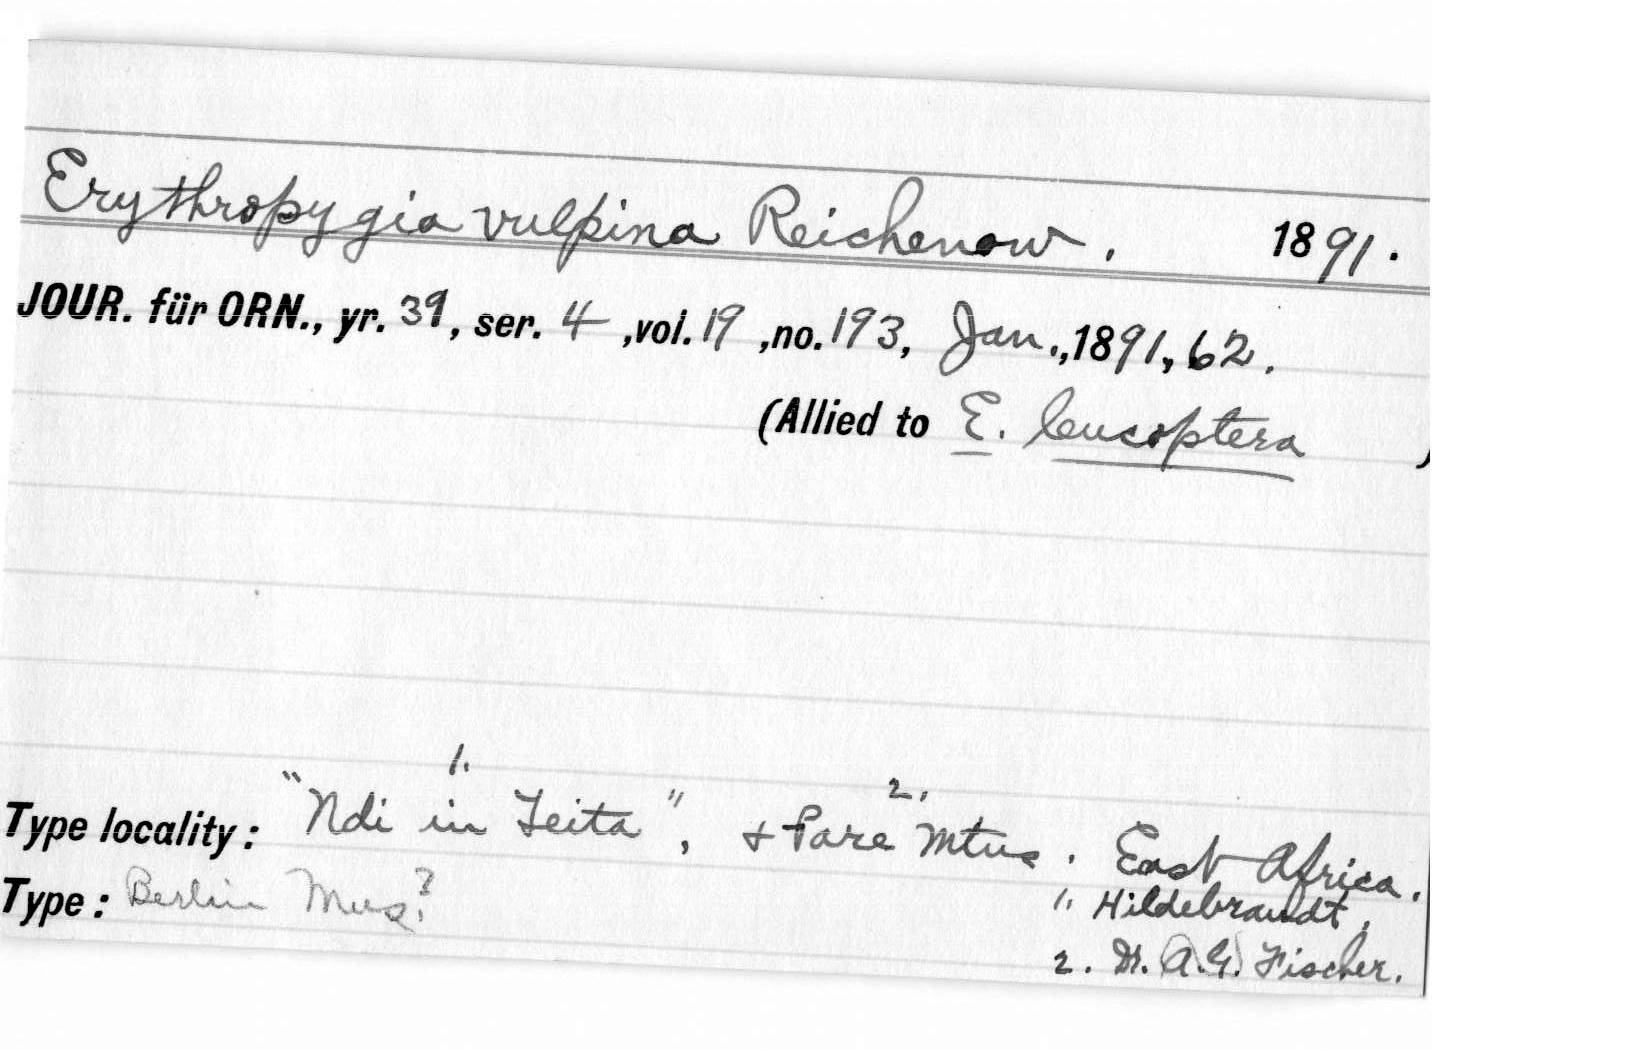 Erythropygia vulpina Reichenow. 1891.
JOUR. für ORN., yr. 39, ser. 4, vol. 19, no. 193, Jan., 1891, 62.
(Allied to E. leucoptera )
1. 2.
Type locality: "Ndi in Teita", + Pare Mtns. East Africa.
Type: Berlin Mus? 1. Hildebrandt,
2. Dr. (A.G.) Fischer.